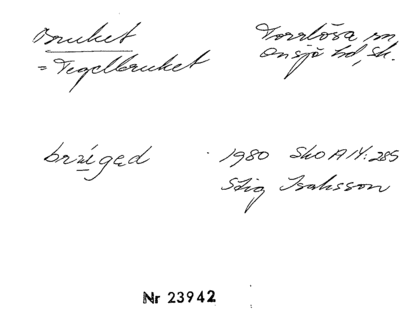 Bruket Torrlösa sn,
= Tegelbruket Onsjö hd, Sk.
1980 SkO A IV: 285
Stig Isaksson
Nr 23942